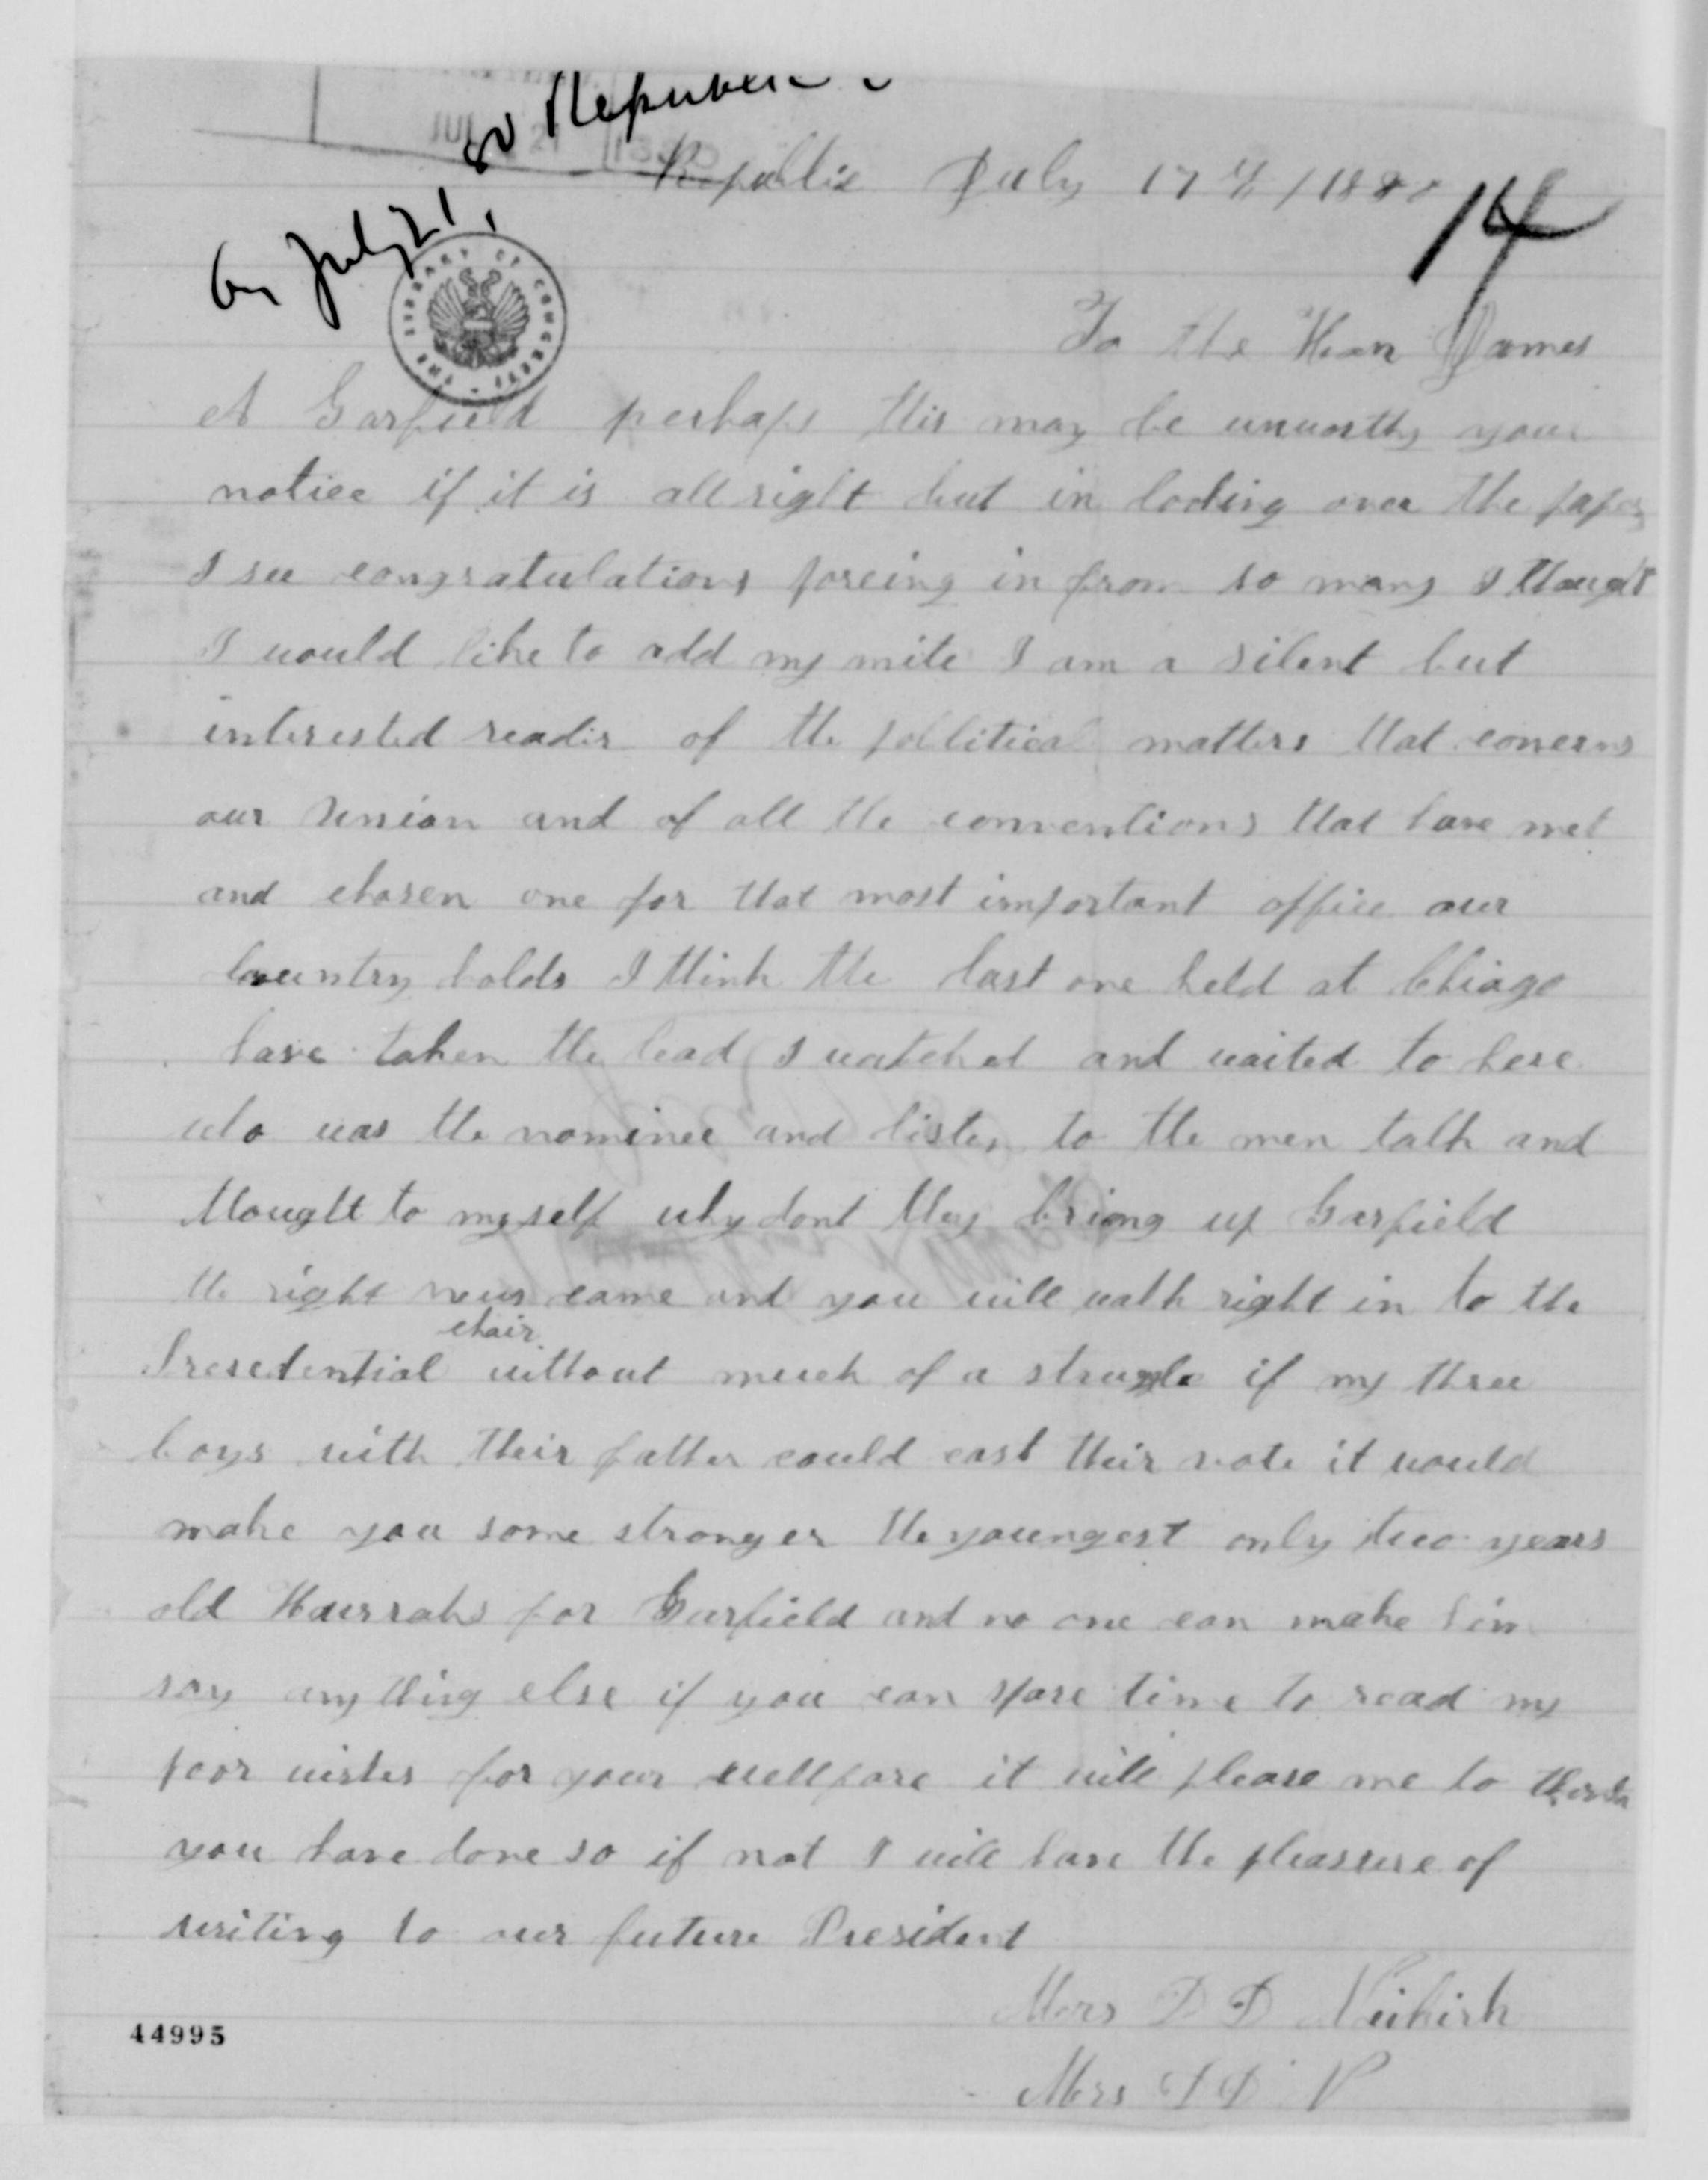 Republic
JUL 21 1880
Republic July 17th / 1880
14
an July 21, 80
THE LIBRARY OF CONGRESS
To the Hon James
A Garfield perhaps this may be unworthy your
notice if it is all right but in looking over the papers
I see congratulations forcing in from so many I thought
I would like to add my mite I am a silent but
interested reader of the pollitical matters that concerns
our Union and of all the conventions that have met
and chosen one for that most important office our
country holds I think the last one held at Chiago
have taken the lead I watched and waited to here
who was the nominee and listen to the men talk and
thought to myself why dont they bring up Garfield
the right news came and you will walk right in to the
chair
Presedential without much of a struggle if my three
boys with their father could cast their vote it would
make you some stronger the youngest only two years
old Hurrahs for Garfield and no one can make him
say anything else if you can spare time to read my
poor wishes for your wellfare it will please me to think
you have done so if not I will have the pleasure of
writing to our future President
Mrs D D Neikirk
Mrs D D N
44995